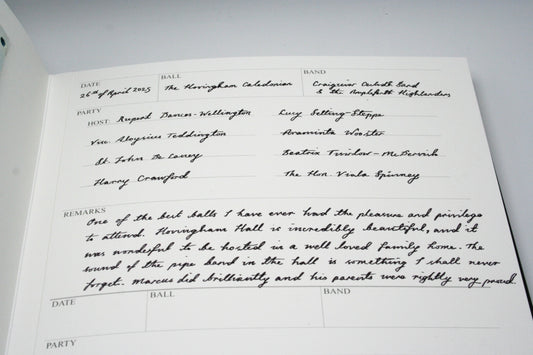 DATE BALL BAND
26th of April 2025 The Hovingham Caledonian Craigivar Ceilidh Band
& the Ampleforth Highlanders
PARTY
HOST: Rupert Dances-Wellington Lucy Setting-Steppe
Visc. Aloysius Teddington Araminta Wooster
St. John De Lacey Beatrix Twirlow-McDervish
Harry Crawford The Hon. Viola Spinney
REMARKS
One of the best balls I have ever had the pleasure and privilege
to attend. Hovingham Hall is incredibly beautiful, and it
was wonderful to be hosted in a well loved family home. The
sound of the pipe band in the hall is something I shall never
forget. Marcus did brilliantly and his parents were rightly very proud.
DATE BALL BAND
PARTY